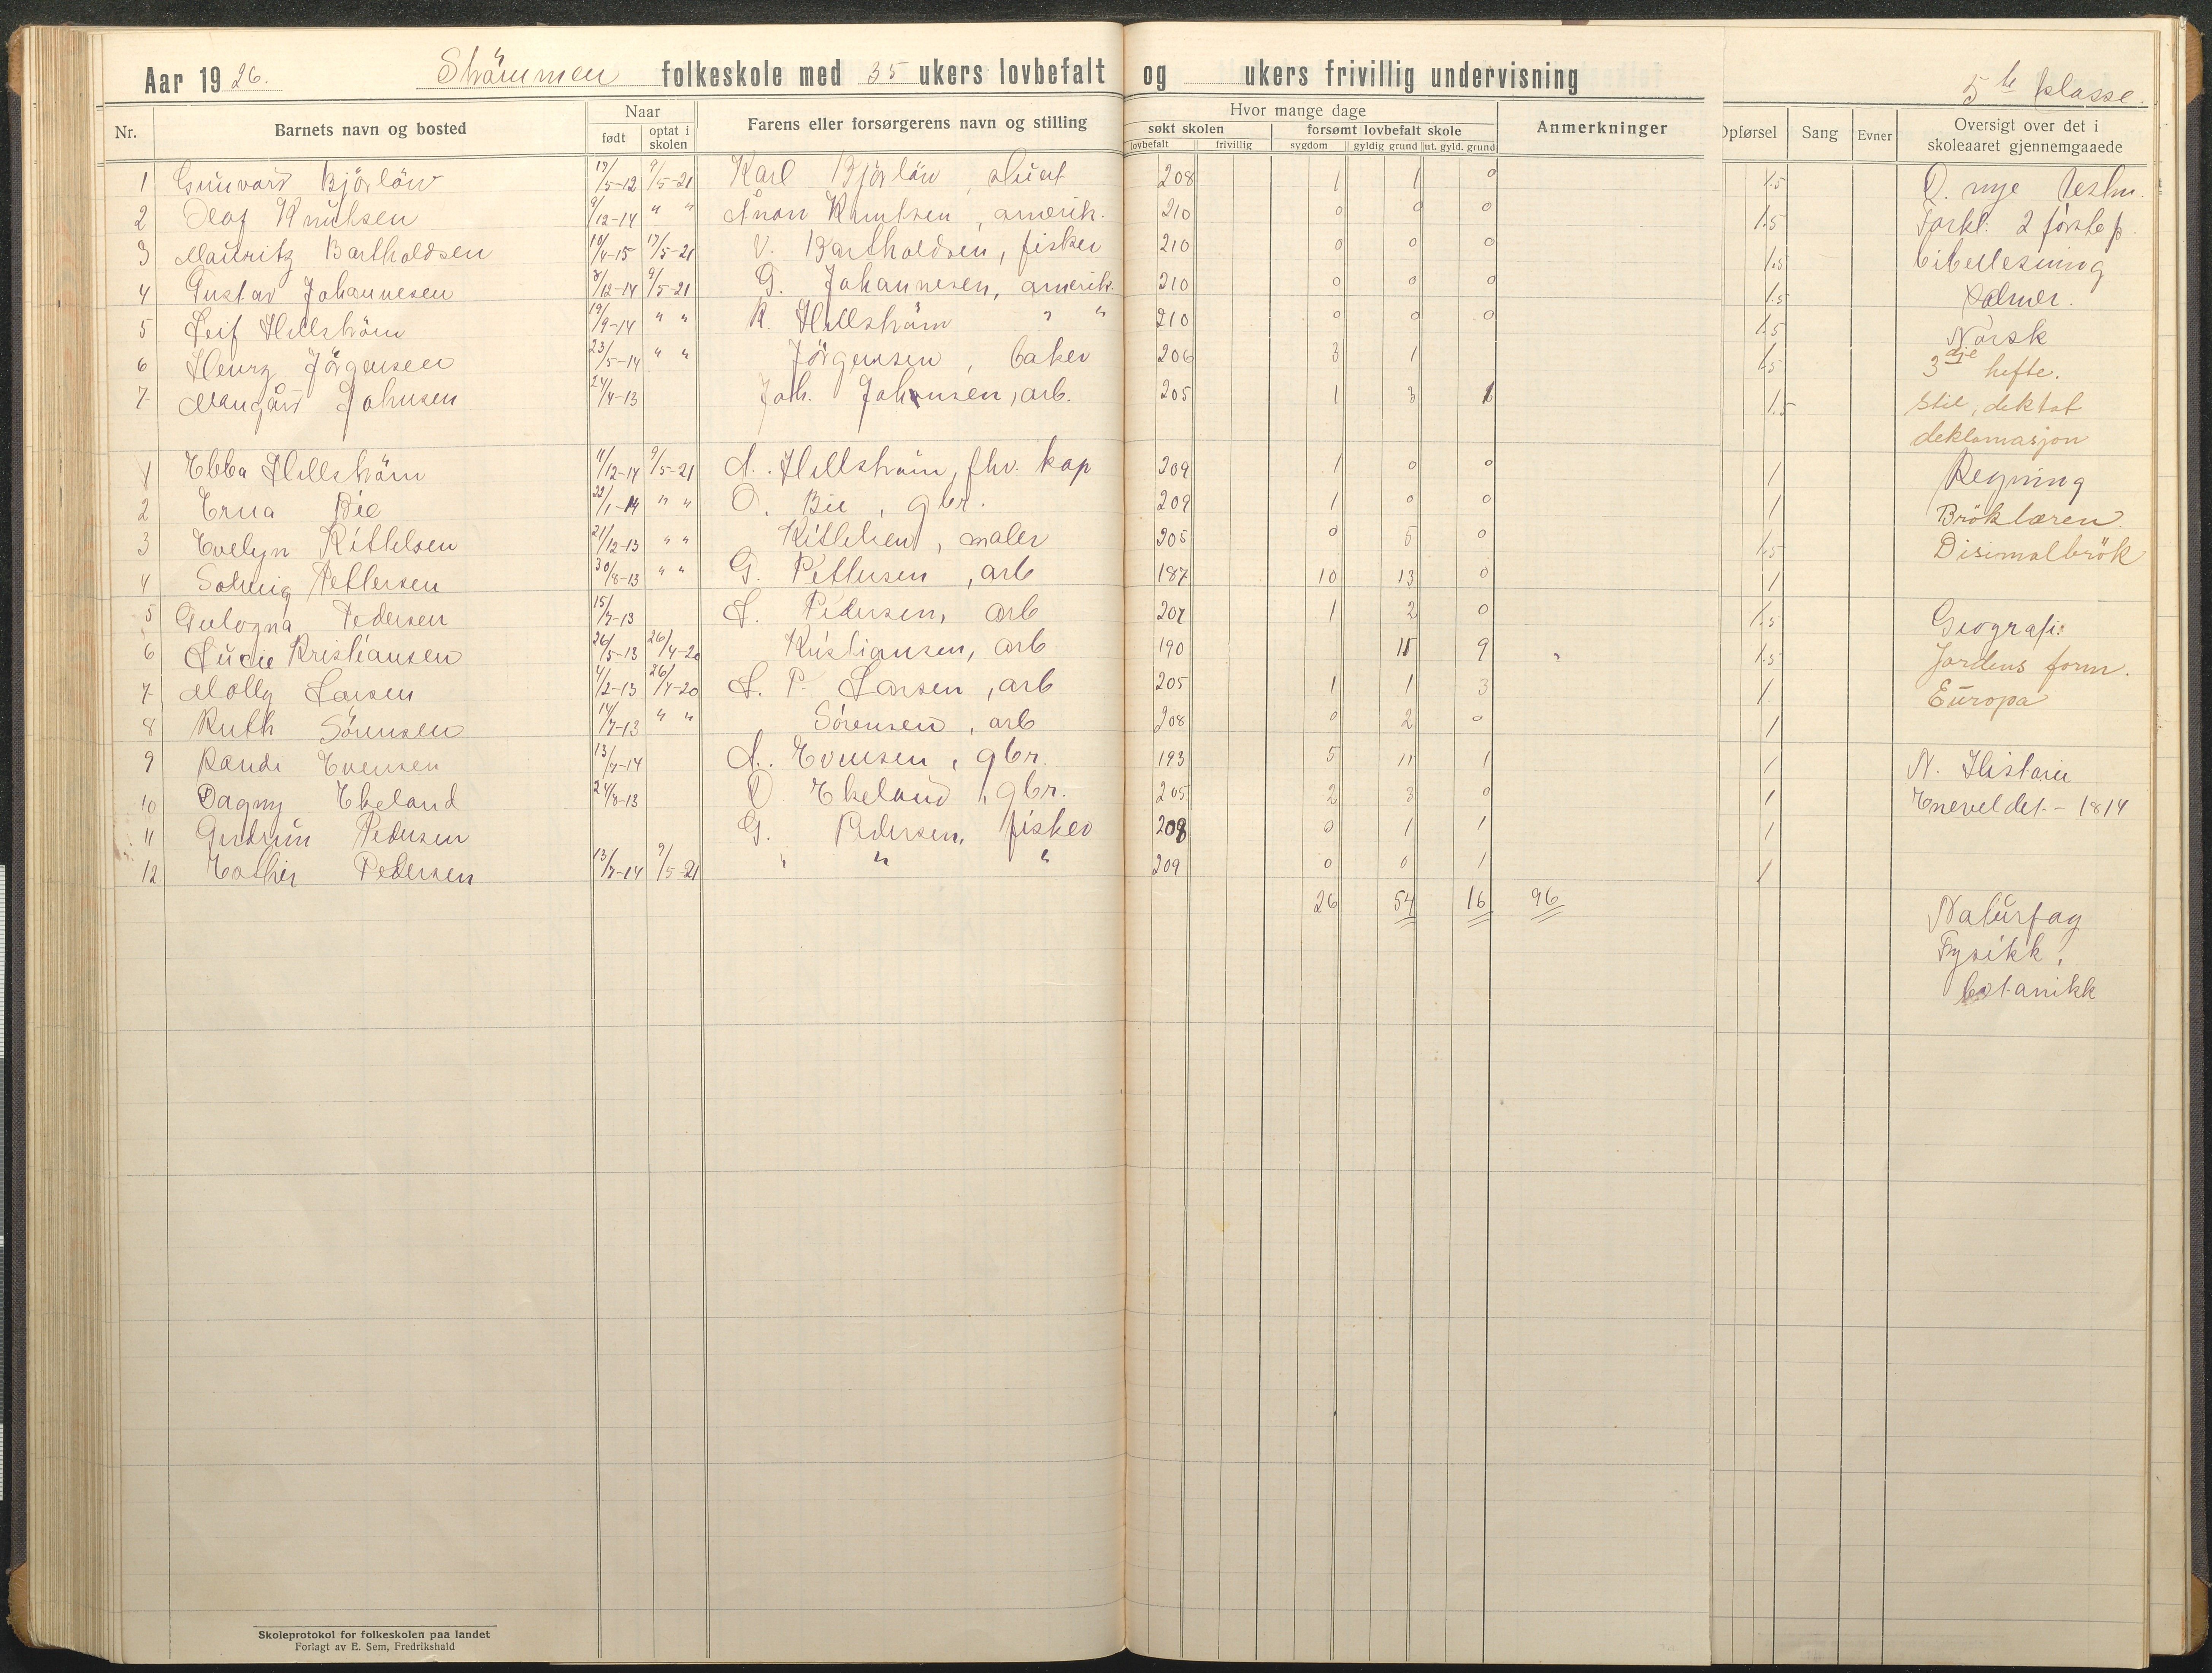 Aar 1926. Strömmen folkeskole med 35 ukers lovbefalt og ukers frivillig undervisning
5te klasse.
Nr. Barnets navn og bosted Naar født optat i skolen Farens eller forsørgerens navn og stilling Hvor mange dage søkt skolen lovbefalt frivillig forsømt lovbefalt skole sygdom gyldig grund ut. gyld. grund Anmerkninger Opførsel Sang Evner Oversigt over det i skoleaaret gjennemgaaede
1 Gunvard Björlöw 19/5-12 9/5-21 Karl Björlöw, 208 1 1 0 1.5 D. nye testm.
2 Olaf Knutsen 9/12-14 " " Knutsen, amerik. 210 0 0 0 1.5 Forkl. 2 förste p.
3 Mauritz Bartholdsen 10/4-15 17/5-21 V. Bartholdsen, fisker 210 0 0 0 1.5 bibellesning
4 Gustav Johannesen 8/12-14 9/5-21 G. Johannesen, amerik. 210 0 0 0 1.5 Salmer.
5 Leif Hellström 19/9-14 " " K. Hellström " " 210 0 0 0 1.5 Norsk
6 Henry Jörgensen 23/5-14 " " Jörgensen, baker 206 3 1 1.5 3dje hefte.
7 Mangård Johnsen 24/4-13 Joh. Johnsen, arb. 205 1 3 1 1.5 Stil, diktat
deklamasjon
1 Ebba Hellström 11/12-14 9/5-21 A. Hellström, fhv. kap 209 1 0 0 1 Regning
2 Erna Bie 22/1-14 " " O. Bie, gbr. 209 1 0 0 1 Bröklæren.
3 Evelyn Kittelsen 21/12-13 " " Kittelsen, maler 205 0 5 0 1.5 Disimalbrök
4 Solveig Pettersen 30/8-13 " " G. Pettersen, arb 187 10 13 0 1
5 Gulogna Pedersen 15/7-13 L. Pedersen, arb 207 1 2 0 1.5 Geografi:
6 Lucie Kristiansen 26/5-13 26/4-20 Kristiansen, arb 190 11 9 1.5 Jordens form.
7 Molly Larsen 4/2-13 26/4-20 L. P. Larsen, arb 205 1 1 3 1 Europa
8 Ruth Sörensen 14/7-13 " " Sörensen, arb 208 0 2 0 1
9 Randi Evensen 13/7-14 A. Evensen, gbr. 193 5 11 1 1 N. Historie
10 Dagny Ekeland 24/8-13 O. Ekeland, gbr. 205 2 3 0 1 Eneveldet - 1814
11 Gudrun Pedersen G. Pedersen, fisker 208 0 1 1 1
12 Esther Pedersen 13/7-14 9/5-21 " " " 209 0 0 1 1
26 54 16 96
Naturfag
Fysikk,
botanikk
Skoleprotokol for folkeskolen paa landet
Forlagt av E. Sem, Fredrikshald